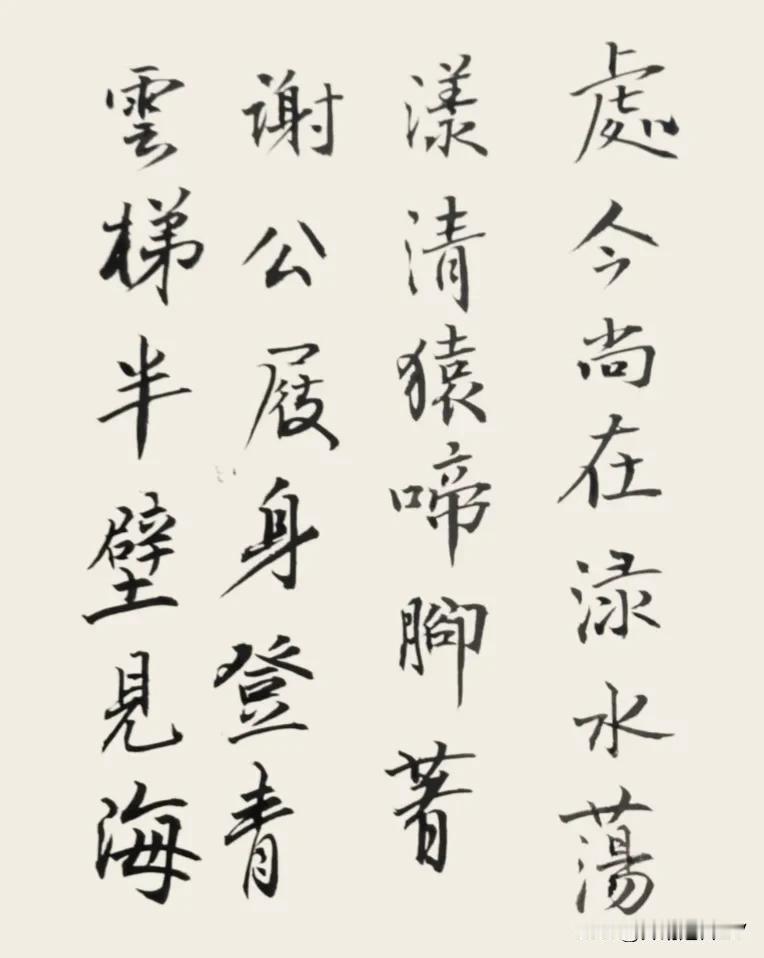 處今尚在渌水蕩
漾清猿啼腳著
谢公屐身登青
雲梯半壁見海